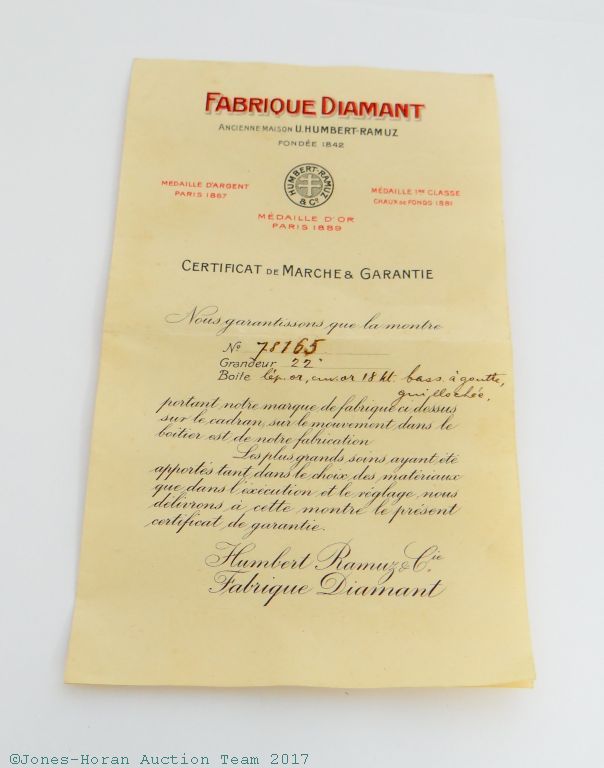 FABRIQUE DIAMANT
ANCIENNE MAISON U. HUMBERT-RAMUZ
FONDÉE 1842
HUMBERT-RAMUZ & Cº
MEDAILLE D'ARGENT
PARIS 1867
MÉDAILLE 1RE CLASSE
CHAUX DE FONDS 1881
MÉDAILLE D'OR
PARIS 1889
CERTIFICAT DE MARCHE & GARANTIE
Nous garantissons que la montre
Nº 78165
Grandeur 22'''
Boite lép. or, cuv. or 18 kt. bass. à goutte,
guillochée,
portant notre marque de fabrique ci dessus
sur le cadran, sur le mouvement dans le
boîtier est de notre fabrication
Les plus grands soins ayant été
apportés tant dans le choix des matériaux
que dans l'éxécution et le réglage, nous
délivrons à cette montre le présent
certificat de garantie.
Humbert Ramuz & Cie
Fabrique Diamant
©Jones-Horan Auction Team 2017